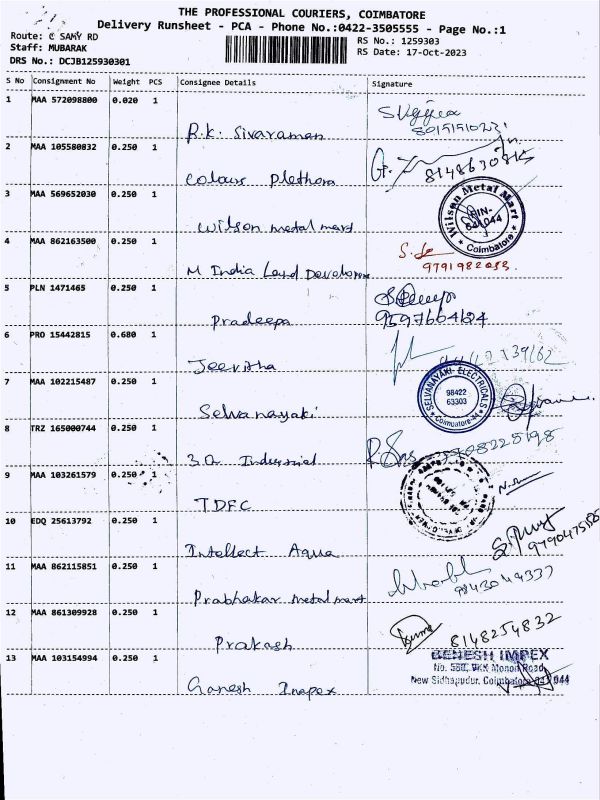 THE PROFESSIONAL COURIERS, COIMBATORE
Delivery Runsheet - PCA - Phone No.:0422-3505555 - Page No.:1
Route: C SAMY RD
RS No.: 1259303
Staff: MUBARAK
RS Date: 17-Oct-2023
DRS No.: DCJB125930301
S No Consignment No Weight PCS Consignee Details Signature
1 MAA 572098800 0.020 1
R.K. Sivaraman
2 MAA 105580832 0.250 1
Colours Plethora 8148630815
3 MAA 569652030 0.250 1
Wilson metal mart
Wilson Metal Mart PIN- 641044 Coimbatore
4 MAA 862163500 0.250 1
M India Land Developers
5 PLN 1471465 0.250 1
Pradeepa 9597664624
6 PRO 15442815 0.680 1
Jeevitha
7 MAA 102215487 0.250 1
Selvanayaki
SELVANAYAKI ELECTRICALS 98422 63303 Coimbatore
8 TRZ 165000744 0.250 1
3.a Industrial
9 MAA 103261579 0.250 1
TDFC
10 EDQ 25613792 0.250 1
Intellect Aqua
11 MAA 862115851 0.250 1
Prabhakar metal mart
12 MAA 861309928 0.250 1
Prakash 8148254832
13 MAA 103154994 0.250 1
Ganesh Inapex
GENESH IMPEX
No. 580, VKK Menon Road,
New Sidhapudur, Coimbatore-641 044